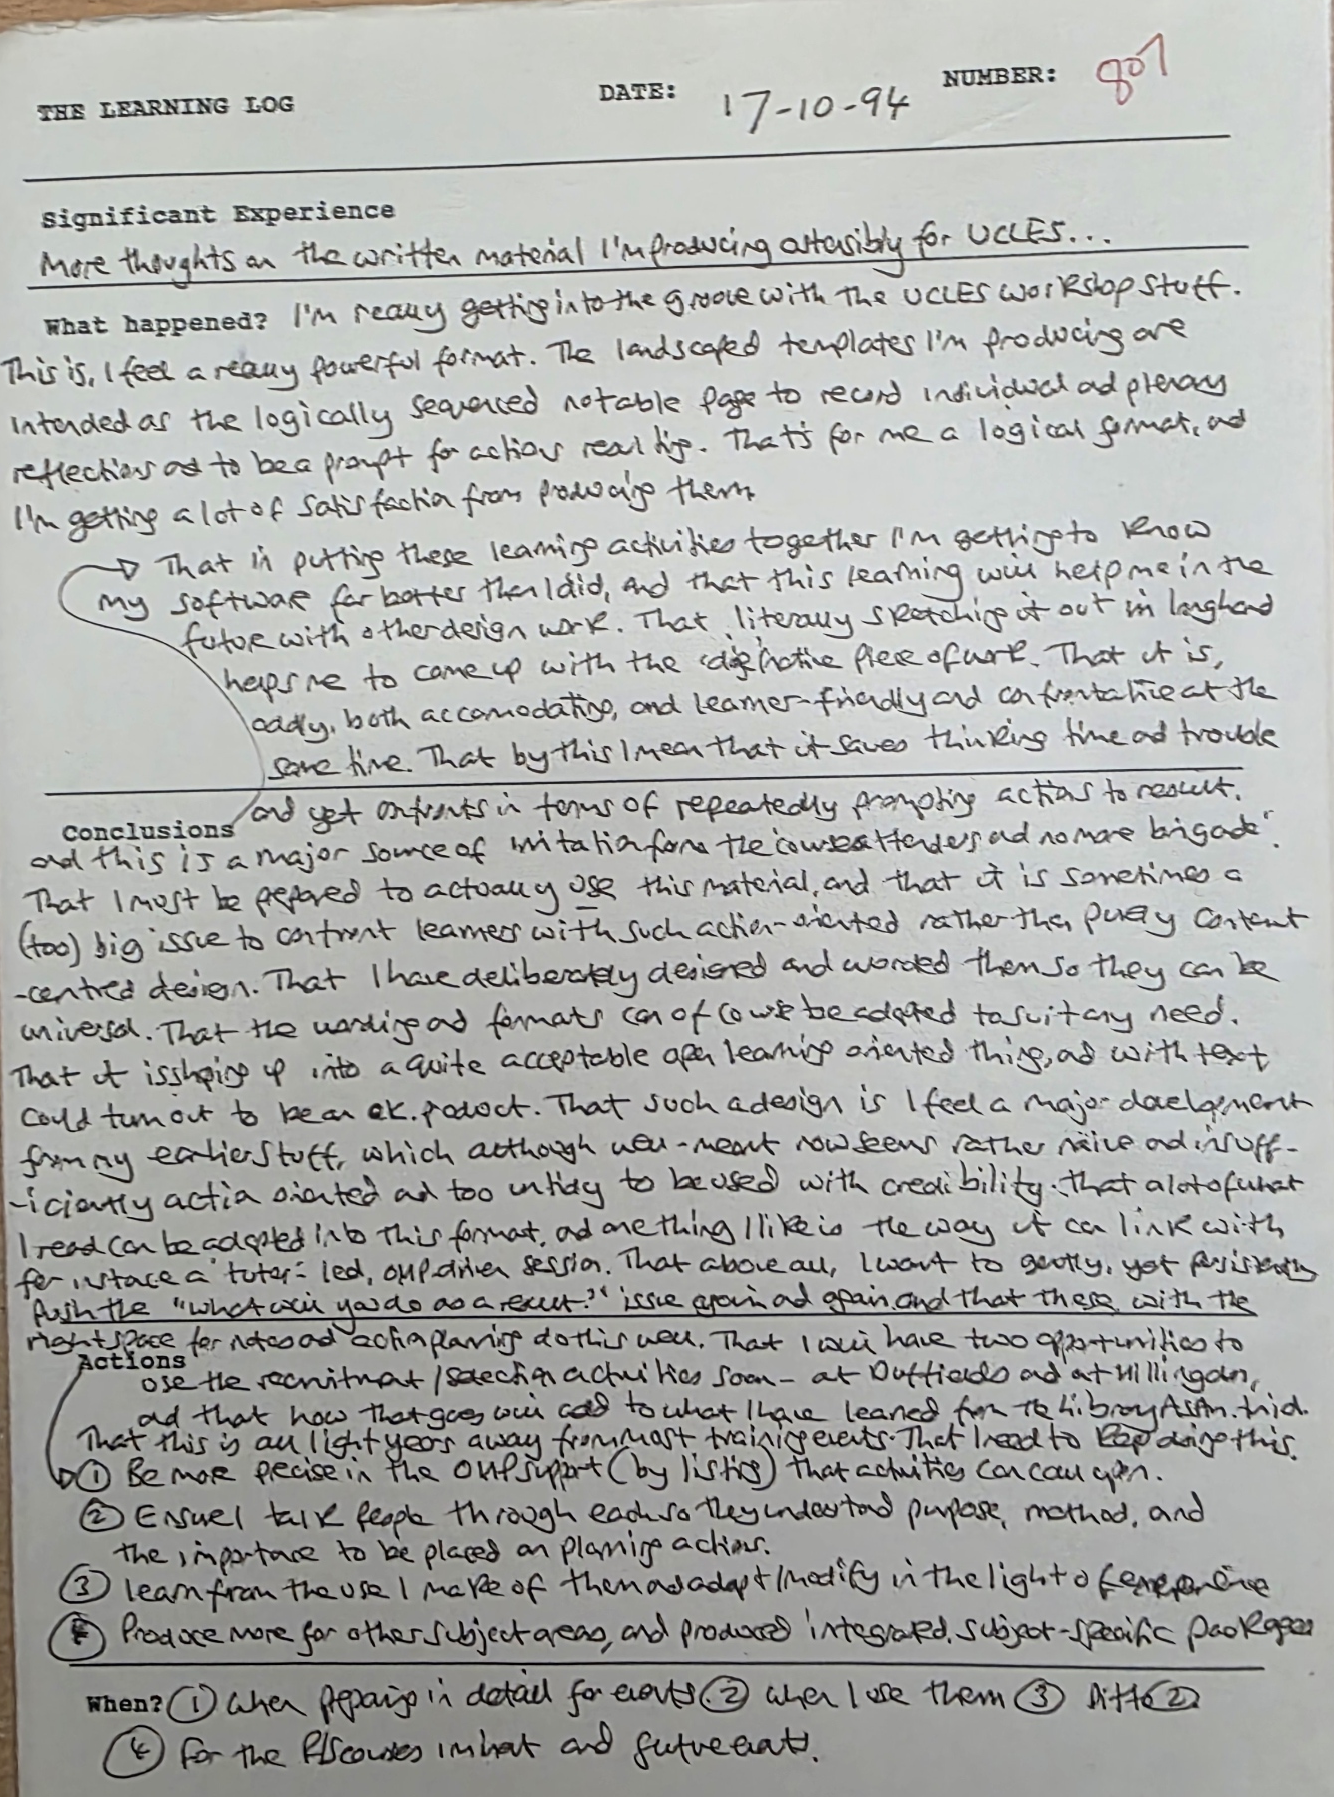 THE LEARNING LOG DATE: 17-10-94 NUMBER: 807
Significant Experience
More thoughts on the written material I'm producing ostensibly for UCLES...
What happened? I'm really getting into the groove with the UCLES workshop stuff.
This is, I feel a really powerful format. The landscaped templates I'm producing are
intended as the logically sequenced notable page to record individual and plenary
reflections and to be a prompt for actions real life. That's for me a logical format, and
I'm getting a lot of satisfaction from producing them
That in putting these learning activities together I'm getting to know
my software far better then I did, and that this learning will help me in the
future with other design work. That literally sketching it out in longhand
helps me to come up with the 'definitive piece of work. That it is,
oddly, both accomodating, and learner-friendly and confrontative at the
same time. That by this I mean that it saves thinking time and trouble
and yet confronts in terms of repeatedly prompting actions to result.
Conclusions
and this is a major source of irritation for the 'course attenders and no more brigade'.
That I must be prepared to actually use this material, and that it is sometimes a
(too) big issue to confront learners with such action-oriented rather than purely content
-centred design. That I have deliberately designed and worded them so they can be
universal. That the wording and formats can of course be adapted to suit any need.
That it is shaping up into a quite acceptable open learning oriented thing, and with text
could turn out to be an o.k. product. That such a design is I feel a major development
from my earlier stuff, which although well-meant now seems rather naive and insuff-
-iciently action oriented and too untidy to be used with credibility. That a lot of what
I read can be adapted into this format, and one thing I like is the way it can link with
for instance a 'tutor'-led, OHP-driven session. That above all, I want to gently, yet persistently
push the "what will you do as a result?" issue again and again, and that these, with the
right space for notes and action planning do this well. That I will have two opportunities to
Actions
use the recruitment/selection activities soon - at Duffields and at Hillingdon,
and that how that goes will add to what I have learned from the Library Assn. trial.
That this is all light years away from most training events. That I need to keep doing this.
① Be more precise in the OHP support (by listing) that activities can call upon.
② Ensure I talk people through each so they understand purpose, method, and
the importance to be placed on planning actions.
③ learn from the use I make of them and adapt/modify in the light of experience
④ Produce more for other subject areas, and produced integrated, subject-specific packages
When? ① When preparing in detail for events ② when I use them ③ Ditto ②
④ For the courses and future events.